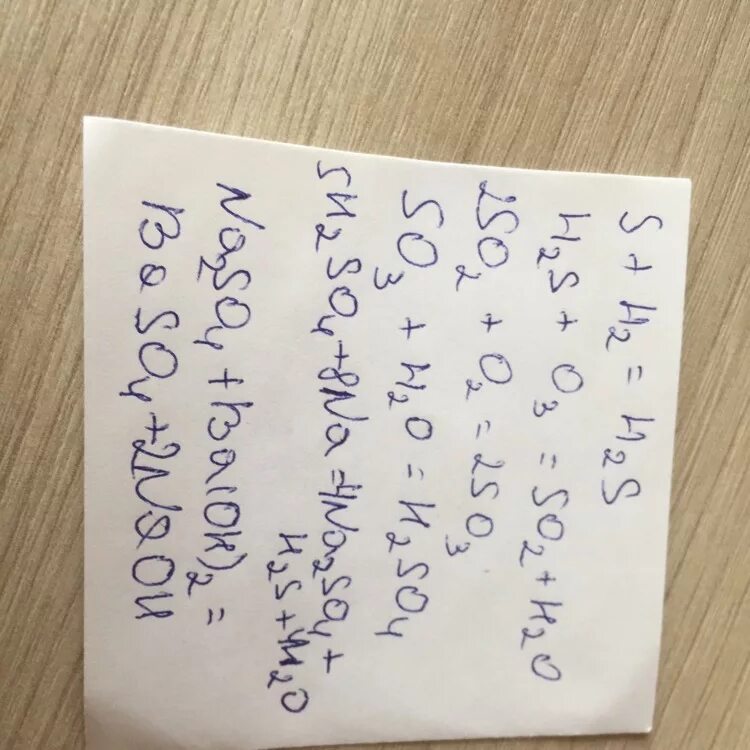 S + H₂ = H₂S
H₂S + O₃ = SO₂ + H₂O
2SO₂ + O₂ = 2SO₃
SO₃ + H₂O = H₂SO₄
5H₂SO₄ + 8Na = 4Na₂SO₄ +
H₂S + 4H₂O
Na₂SO₄ + Ba(OH)₂ =
BaSO₄ + 2NaOH